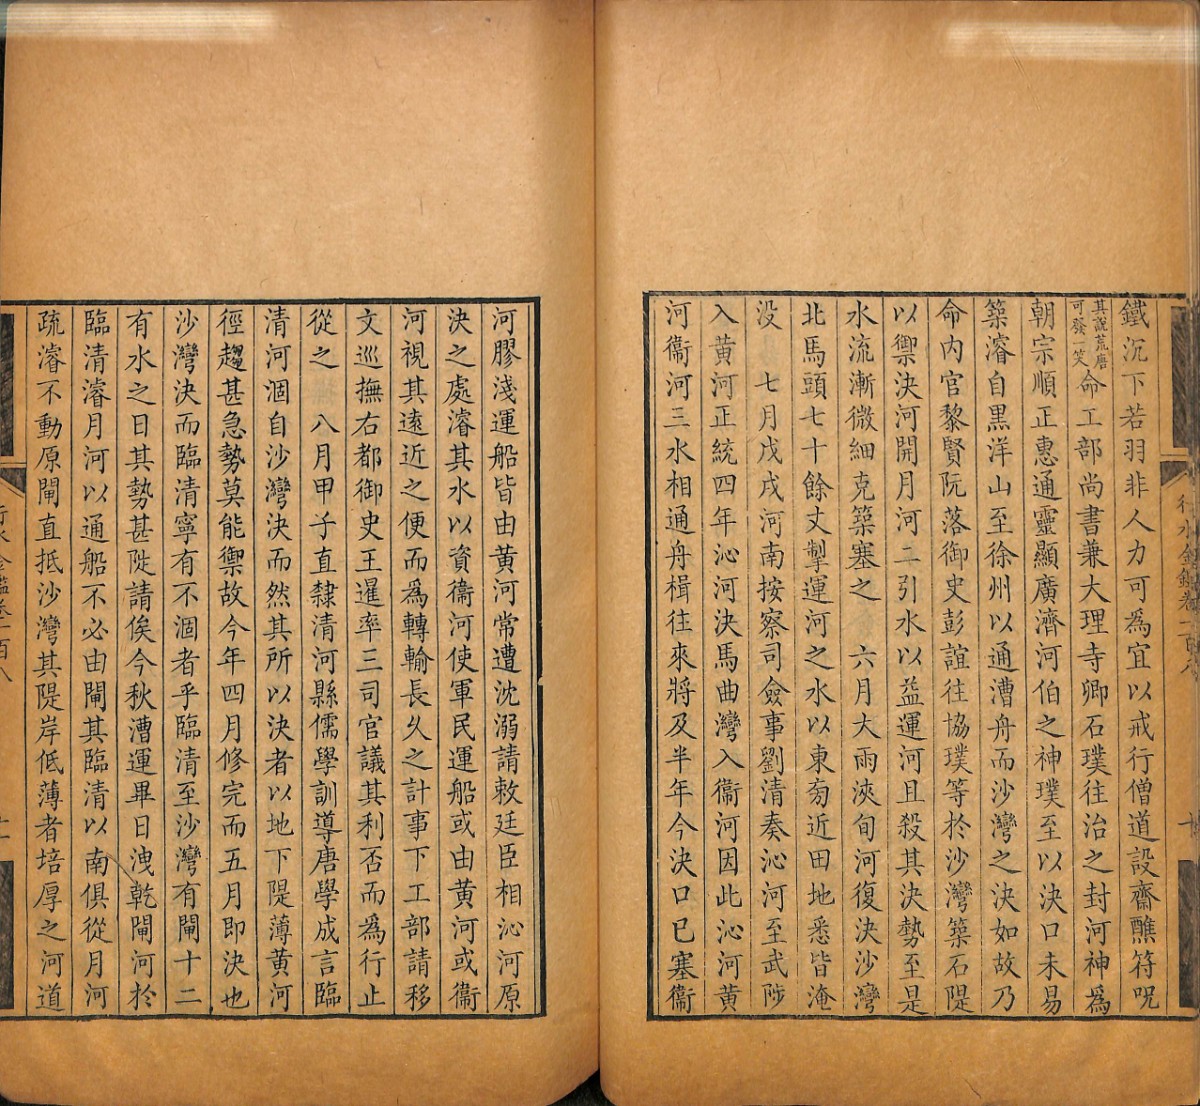 鐵沉下若羽非人力可為宜以戒行僧道設齋醮符呪
其說荒唐可發一笑命工部尚書兼大理寺卿石璞往治之封河神為
朝宗順正惠通靈顯廣濟河伯之神璞至以決口未易
築濬自黑洋山至徐州以通漕舟而沙灣之決如故乃
命內官黎賢阮落御史彭誼往協璞等於沙灣築石隄
以禦決河開月河二引水以益運河且殺其決勢至是
水流漸微細克築塞之 六月大雨浹旬河復決沙灣
北馬頭七十餘丈掣運河之水以東旁近田地悉皆淹
没 七月戊戌河南按察司僉事劉清奏沁河至武陟
入黄河正統四年沁河決馬曲灣入衞河因此沁河黄
河衞河三水相通舟楫往來將及半年今決口已塞衞
行水金鑑卷一百八
河膠淺運船皆由黄河常遭沈溺請敕廷臣相沁河原
決之處濬其水以資衞河使軍民運船或由黄河或衞
河視其遠近之便而為轉輸長久之計事下工部請移
文巡撫右都御史王暹率三司官議其利否而為行止
從之 八月甲子直隸清河縣儒學訓導唐學成言臨
清河涸自沙灣決而然其所以決者以地下隄薄黄河
徑趨甚急勢莫能禦故今年四月修完而五月即決也
沙灣決而臨清寧有不涸者乎臨清至沙灣有閘十二
有水之日其勢甚陡請俟今秋漕運畢日洩乾閘河於
臨清濬月河以通船不必由閘其臨清以南俱從月河
疏濬不動原閘直抵沙灣其隄岸低薄者培厚之河道
行水金鑑卷一百八